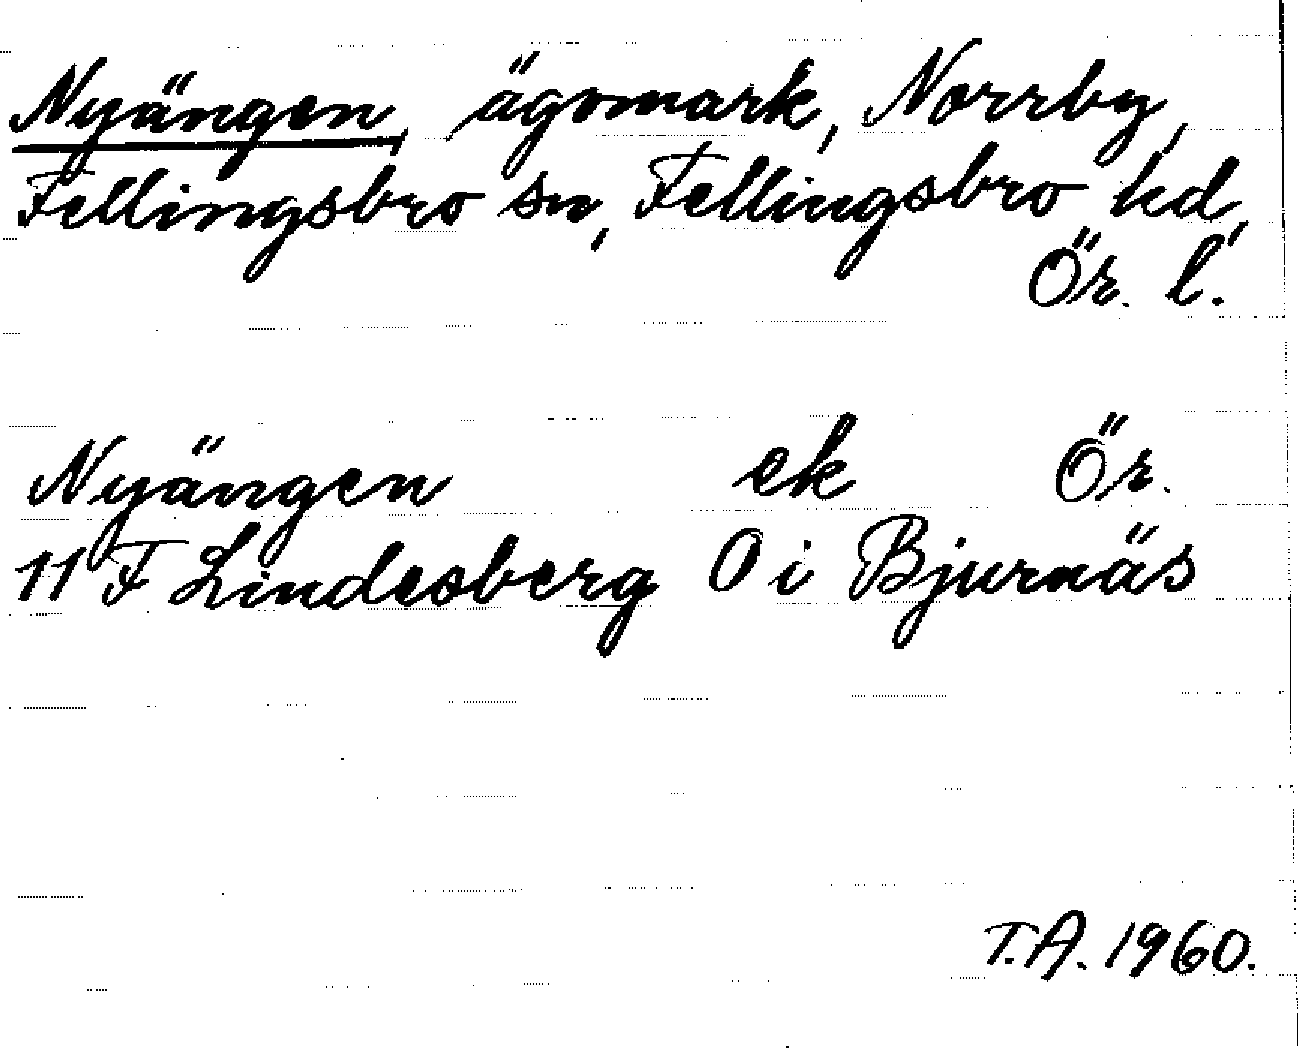 Nyängen, ägomark, Norrby,
Fellingsbro sn, Fellingsbro hd,
Ör. l.
Nyängen ek Ör.
11 F Lindesberg O i Bjurnäs
T.A. 1960.